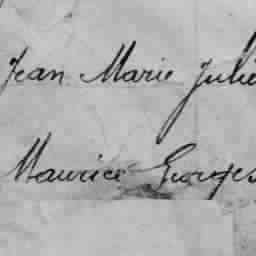 Jean Marie Julie
Maurice Georges